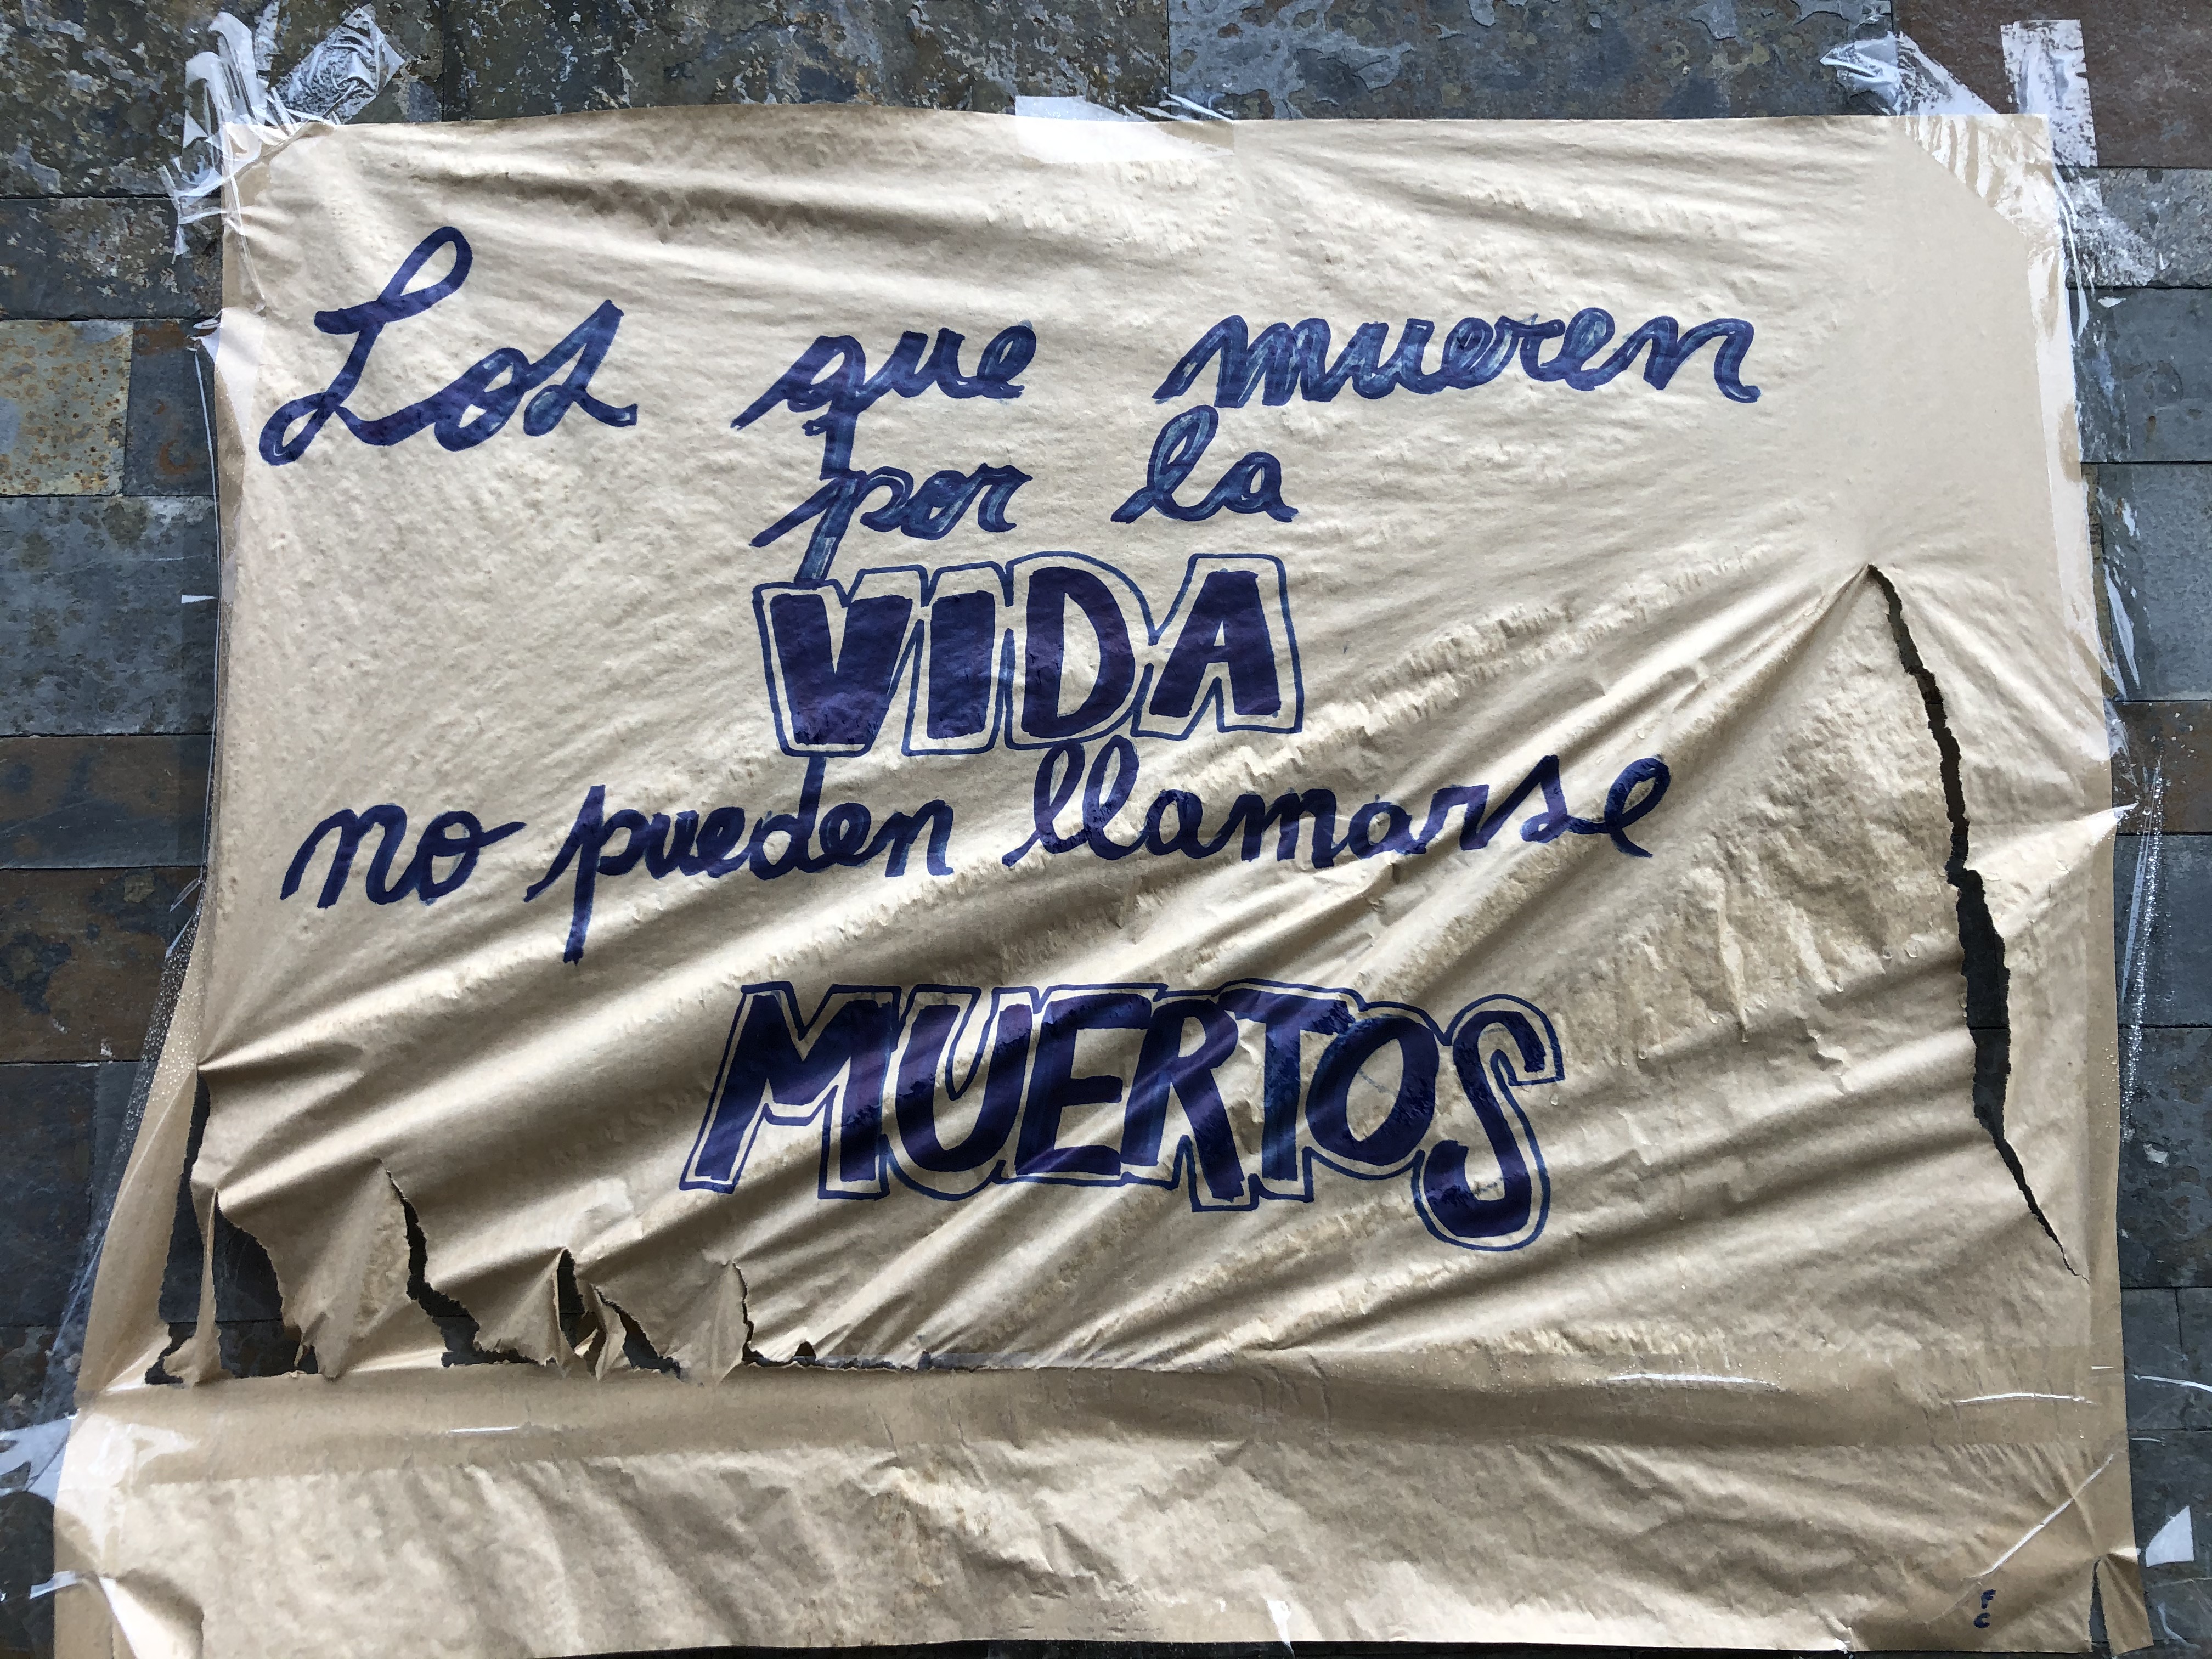 Los que mueren
por la
VIDA
no pueden llamarse
MUERTOS
F
C